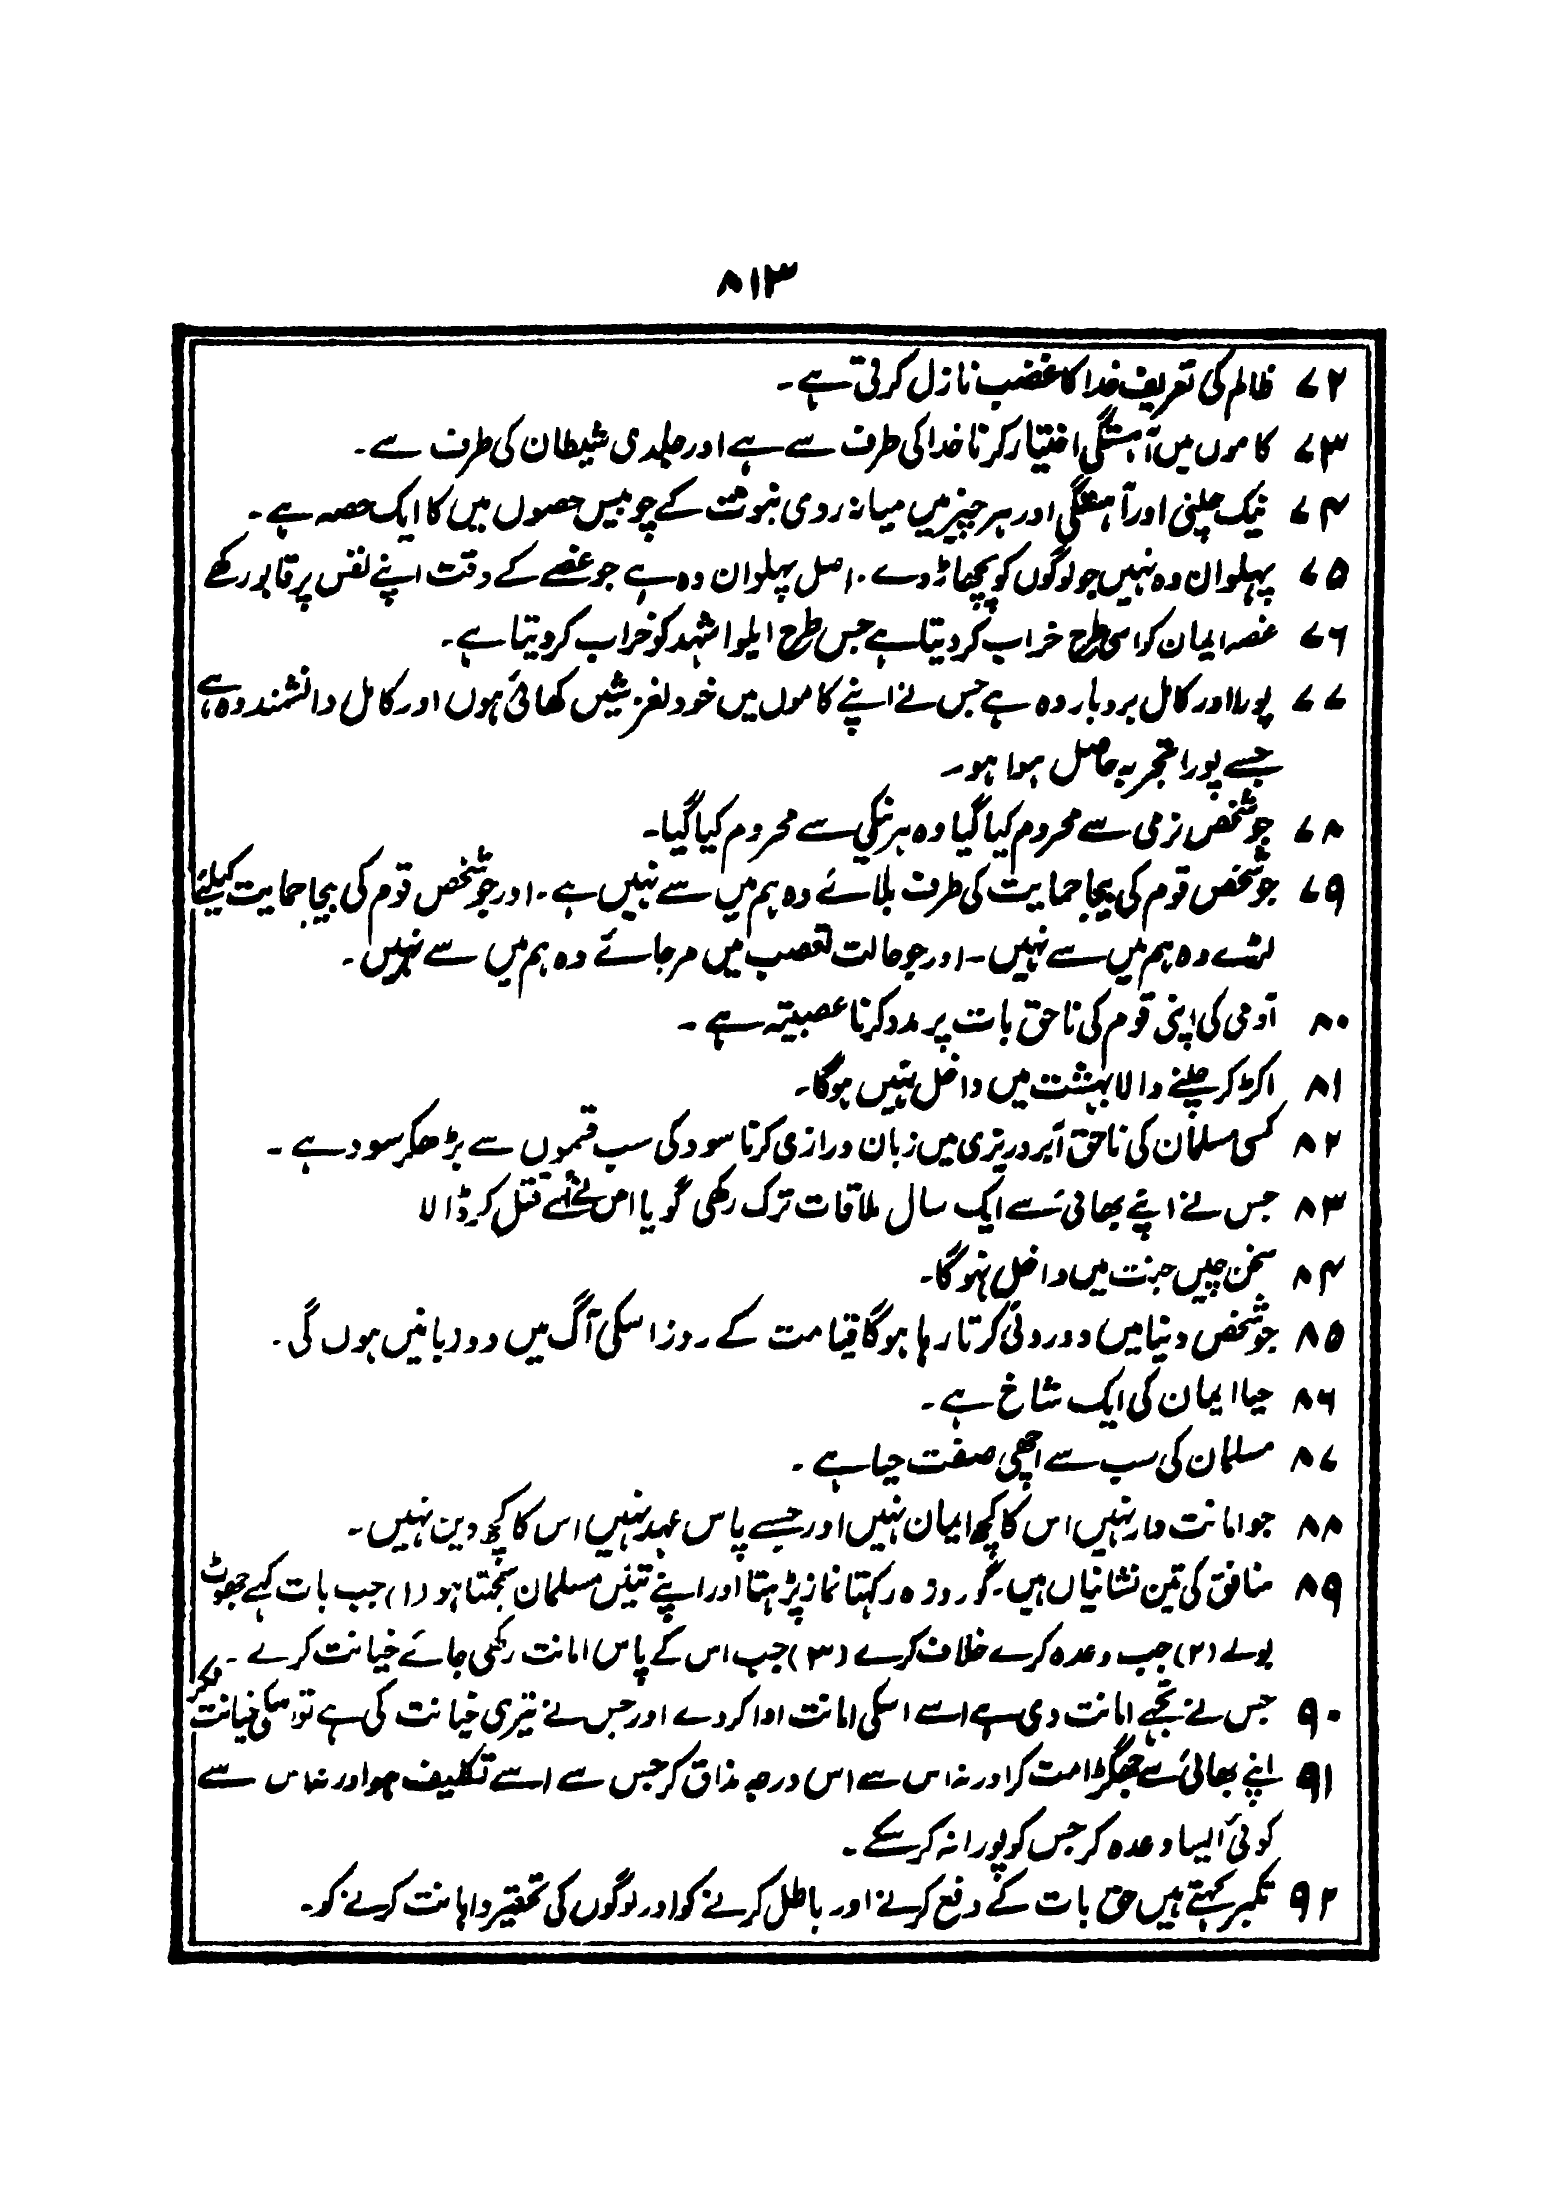 ۸۱۳
۷۲ ظالم کی تعریف خدا کا غضب نازل کرتی ہے۔
۷۳ کاموں میں آہستگی اختیار کرنا خدا کی طرف سے ہے اور جلدی شیطان کی طرف سے۔
۷۴ نیک چلنی اور آہستگی اور ہر چیز میں میانہ روی نبوت کے چوبیس حصوں میں کا ایک حصہ ہے۔
۷۵ پہلوان وہ نہیں جو لوگوں کو پچھاڑ دے۔ اصل پہلوان وہ ہے جو غصے کے وقت اپنے نفس پر قابو رکھے
۷۶ غصہ ایمان کو اسی طرح خراب کر دیتا ہے جس طرح ایلوا شہد کو خراب کر دیتا ہے۔
۷۷ پورا اور کامل بردبار وہ ہے جس نے اپنے کاموں میں خود لغزشیں کھائی ہوں اور کامل دانشمند وہ ہے
جسے پورا تجربہ حاصل ہوا ہو۔
۷۸ جو شخص نرمی سے محروم کیا گیا وہ ہر نیکی سے محروم کیا گیا۔
۷۹ جو شخص قوم کی بیجا حمایت کی طرف بلائے وہ ہم میں سے نہیں ہے۔ اور جو شخص قوم کی بیجا حمایت کیلئے
لڑے وہ ہم میں سے نہیں۔ اور جو حالت تعصب میں مر جائے وہ ہم میں سے نہیں۔
۸۰ آدمی کی اپنی قوم کی ناحق بات پر مدد کرنا عصبیتہ ہے۔
۸۱ اکڑ کر چلنے والا بہشت میں داخل نہیں ہوگا۔
۸۲ کسی مسلمان کی ناحق آبروریزی میں زبان درازی کرنا سود کی سب قسموں سے بڑھکر سود ہے۔
۸۳ جس نے اپنے بھائی سے ایک سال ملاقات ترک رکھی گویا اس نے اُسے قتل کر ڈالا
۸۴ سخن چیں جنت میں داخل نہوگا۔
۸۵ جو شخص دنیا میں دوروئی کرتا رہا ہوگا قیامت کے روز اسکی آگ میں دو زبانیں ہوں گی۔
۸۶ حیا ایمان کی ایک شاخ ہے۔
۸۷ مسلمان کی سب سے اچھی صفت حیا ہے۔
۸۸ جو امانت دار نہیں اس کا کچھ ایمان نہیں اور جسے پاس عہد نہیں اس کا کچھ دین نہیں۔
۸۹ منافق کی تین نشانیاں ہیں۔ گو روزہ رکہتا نماز پڑہتا اور اپنے تئیں مسلمان سمجتا ہو (۱) جب بات کہے جھوٹ
بولے (۲) جب وعدہ کرے خلاف کرے (۳) جب اس کے پاس امانت رکھی جائے خیانت کرے۔
۹۰ جس نے تجھے امانت دی ہے اسے اسکی امانت ادا کر دے اور جس نے تیری خیانت کی ہے تو اسکی خیانت نکر
۹۱ اپنے بھائی سے جھگڑا مت کر اور نہ اس سے اس درجہ مذاق کر جس سے اسے تکلیف ہو اور نہ اس سے
کوئی ایسا وعدہ کر جس کو پورا نہ کر سکے۔
۹۲ تکبر کہتے ہیں حق بات کے دفع کرنے اور باطل کرنے کو اور لوگوں کی تحقیر و اہانت کرنے کو۔